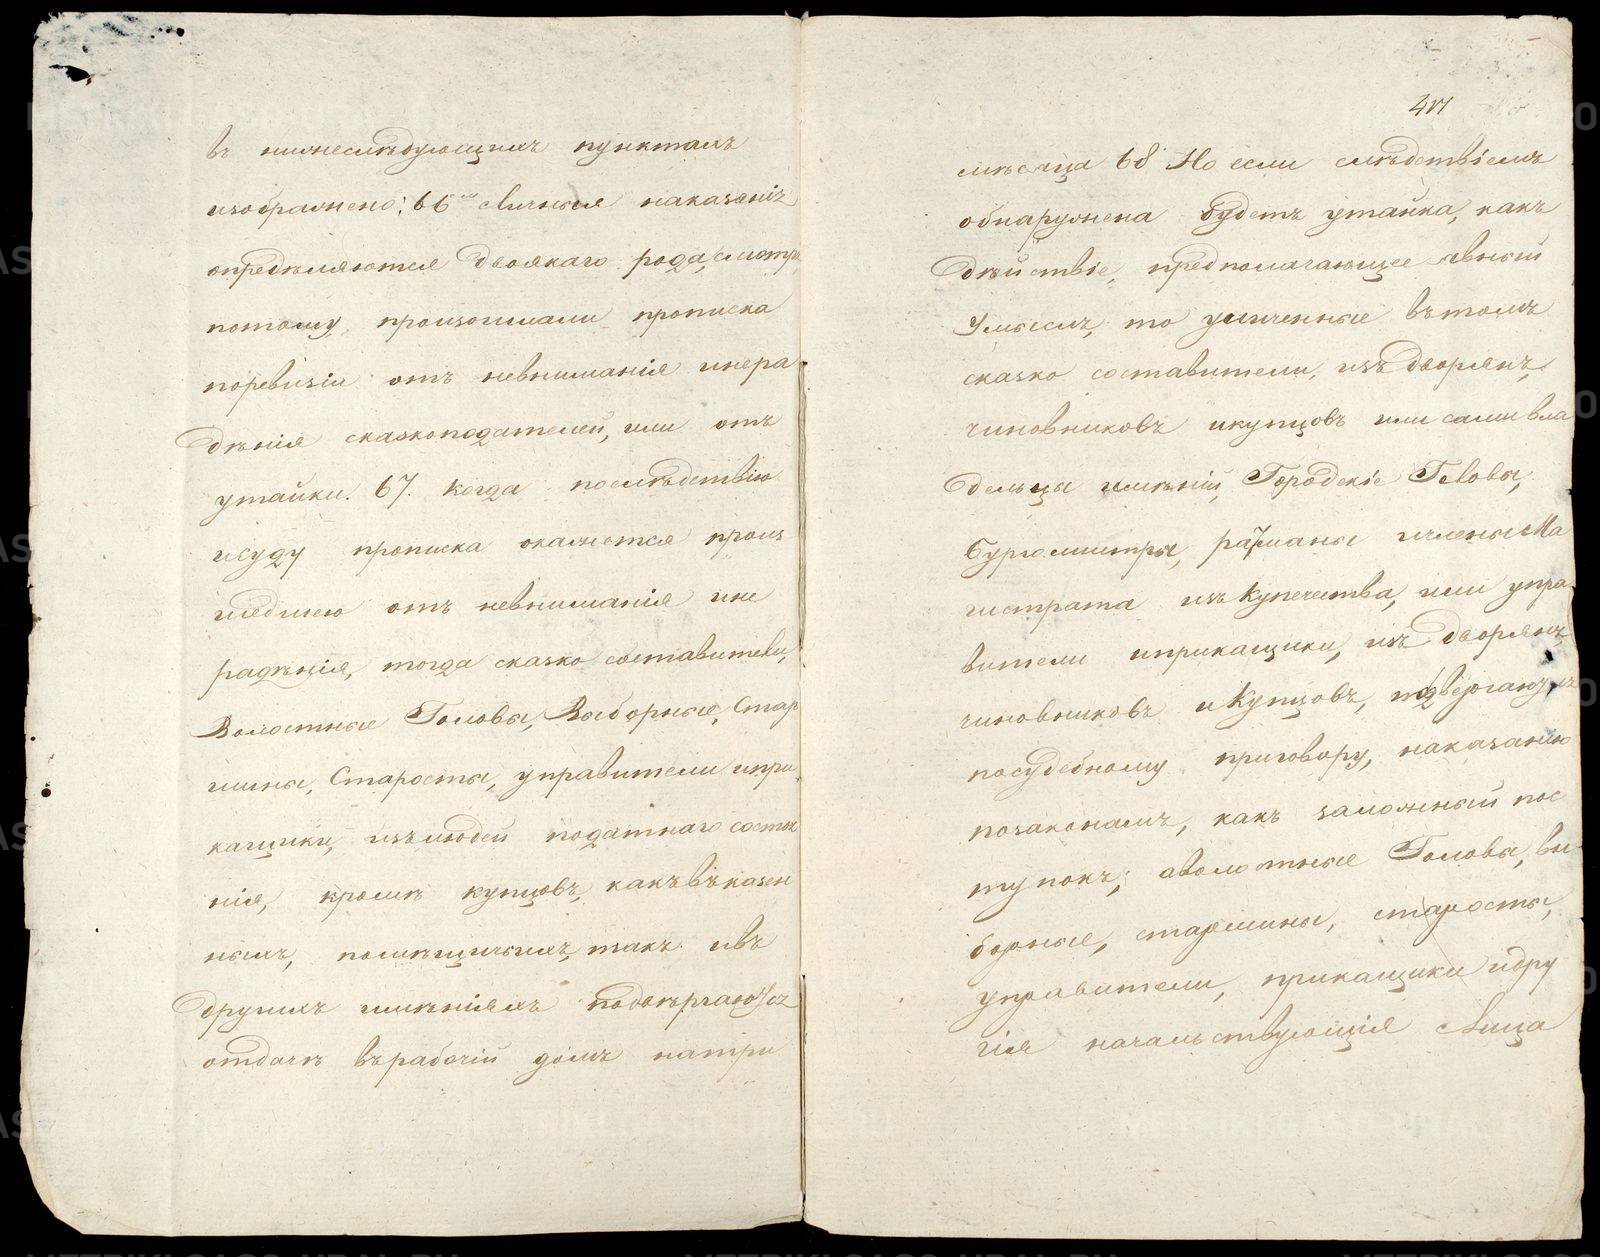 въ нижеслѣдующихъ пунктахъ
изображено: 66 Личныя наказанія
опредѣляются двоякаго рода, смотря
потому, произошлали прописка
поревизіи отъ невниманія инера
дѣнія сказкоподателей, или отъ
утайки. 67. когда послѣдствію
исуду прописка окажется проиs
шедшею отъ невниманія ине
радѣнія, тогда сказко составители,
Волостные Головы, Выборные, Стар
шины, Старосты, управители ипри
кащики, изълюдей податнаго состоя
нія, кромѣ купцовъ, какъвъказен
ныхъ, помѣщичьихъ, такъ ивъ
другихъ имѣніяхъ подвѣргаются
отдачѣ върабочій домъ натри
47
мѣсяца 68 Но если слѣдствіемъ
обнаружена будетъ утайка, какъ
дѣйствіе, предполагающее явный
умыселъ, то уличенные втомъ
сказко составители, изъ дворянъ,
чиновниковъ икупцовъ или сами вла
дельцы имѣній, Городскіе Головы,
Бургомистры, ратманы ичлены Ма
гистрата изъ Купечества, или упра
вители иприкащики, изъ дворянъ,
чиновниковъ и Купцовъ, подвергаются
посудебному приговору, наказанію
позаконамъ, какъ заложный пос
тупокъ; аволостные Головы, вы
борные, старшины, старосты,
управители, прикащики идру
гія начальствующія Лица